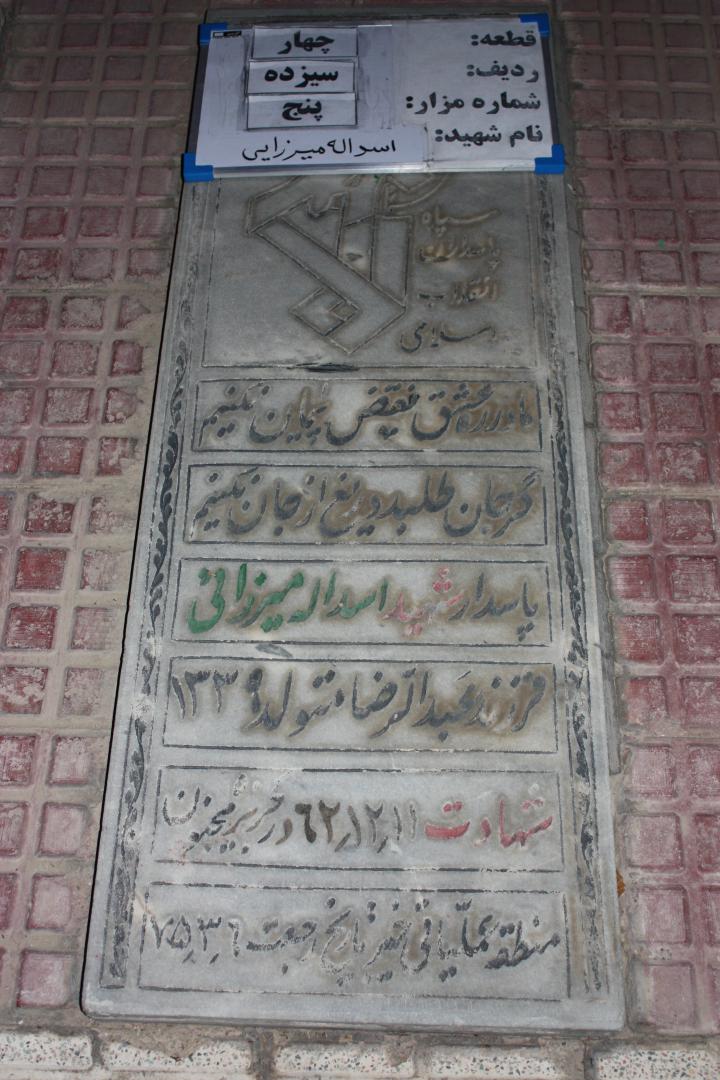 قطعه: چهار
ردیف: سیزده
شماره مزار: پنج
نام شهید: اسداله میرزایی
سپاه
پاسداران
انقلاب
اسلامی
ما در ره عشق نقض پیمان نکنیم
گر جان طلبد دریغ از جان نکنیم
پاسدار شهید اسداله میرزائی
فرزند عبدالرضا متولد ۱۳۳۹
شهادت ۶۲٫۱۲٫۱۱ در جزیره مجنون
منطقه عملیاتی خیبر تاریخ رجعت ۷۵٫۳٫۶